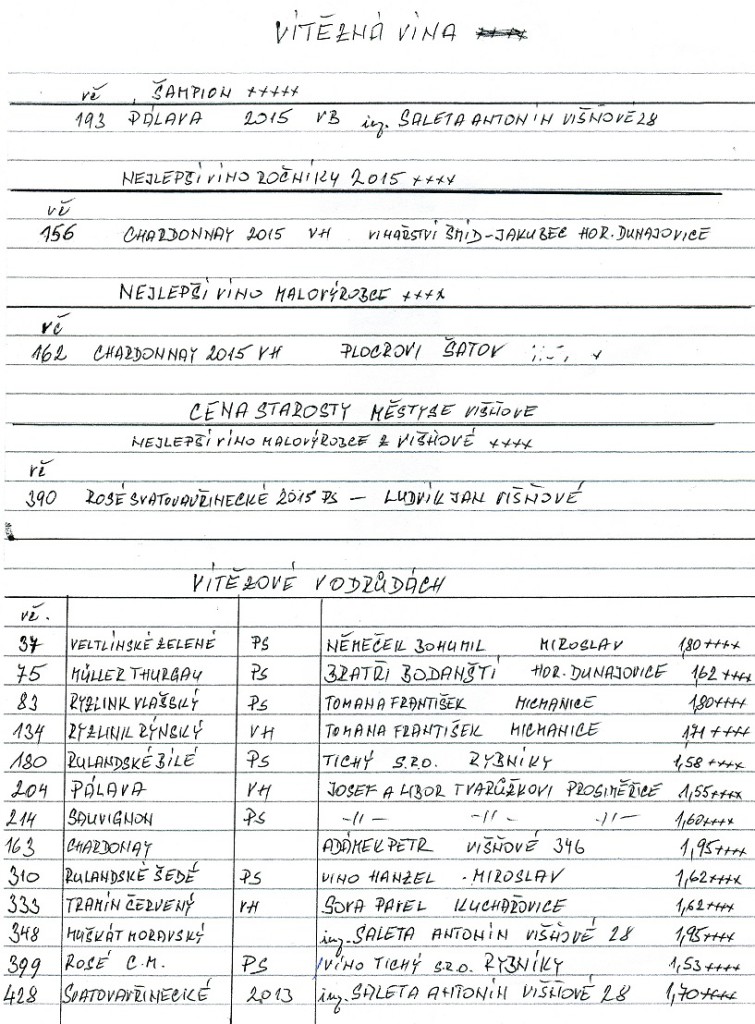 VÍTĚZNÁ VÍNA
vč ŠAMPION +++++
193 PÁLAVA 2015 VB ing. SALETA ANTONÍN VIŠŇOVÉ 28
NEJLEPŠÍ VÍNO ROČNÍKY 2015 ++++
vč
156 CHARDONNAY 2015 VH VINAŘSTVÍ ŠMÍD-JAKUBEC HOR. DUNAJOVICE
NEJLEPŠÍ VÍNO MALOVÝROBCE ++++
vč
162 CHARDONNAY 2015 VH PLOCROVI ŠATOV
CENA STAROSTY MĚSTYSE VIŠŇOVE
NEJLEPŠÍ VÍNO MALOVÝROBCE Z VIŠŇOVÉ ++++
vč
390 ROSÉ SVATOVAVŘINECKÉ 2015 PS – LUDVÍK JAN VIŠŇOVÉ
VÍTĚZOVÉ V ODRŮDÁCH
vč.
37 VELTLÍNSKÉ ZELENÉ PS NĚMEČEK BOHUMIL MIROSLAV 1,80 ++++
75 MÜLLER THURGAU PS BRATŘI BODANŠTÍ HOR. DUNAJOVICE 1,62 ++++
83 RYZLINK VLAŠSKÝ PS TOMANA FRANTIŠEK MICMANICE 1,80 ++++
134 RÝZLINIK RÝNSKÝ VH TOMANA FRANTIŠEK MICMANICE 1,71 ++++
180 RULANDSKÉ BÍLÉ PS TICHÝ S.R.O. RYBNÍKY 1,58 ++++
204 PÁLAVA VH JOSEF A LIBOR TVARŮŽKOVI PROSIMĚŘICE 1,55 ++++
214 SAUVIGNON PS -//- -//- -//- 1,60 ++++
163 CHARDONAY ADÁMEK PETR VIŠŇOVÉ 346 1,95 ++++
310 RULANDSKÉ ŠEDÉ PS VINO HANZEL - MIROSLAV 1,62 ++++
333 TRAMÍN ČERVENÝ VH SOVA PAVEL KUCHAŘOVICE 1,62 ++++
348 MUŠKÁT MORAVSKÝ ing. SALETA ANTONÍN VIŠŇOVÉ 28 1,95 ++++
399 ROSÉ C.M. PS VÍNO TICHÝ S.R.O. RYBNÍKY 1,53 ++++
428 SVATOVAVŘINECKÉ 2013 ing. SALETA ANTONÍN VIŠŇOVÉ 28 1,70 ++++